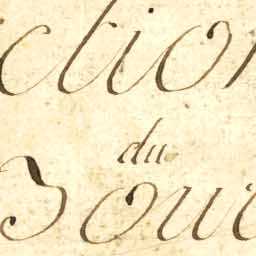 ction
du
Bour